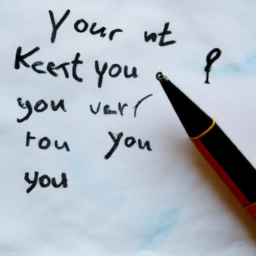 Your nt
Keert you ?
you verr
rou you
you